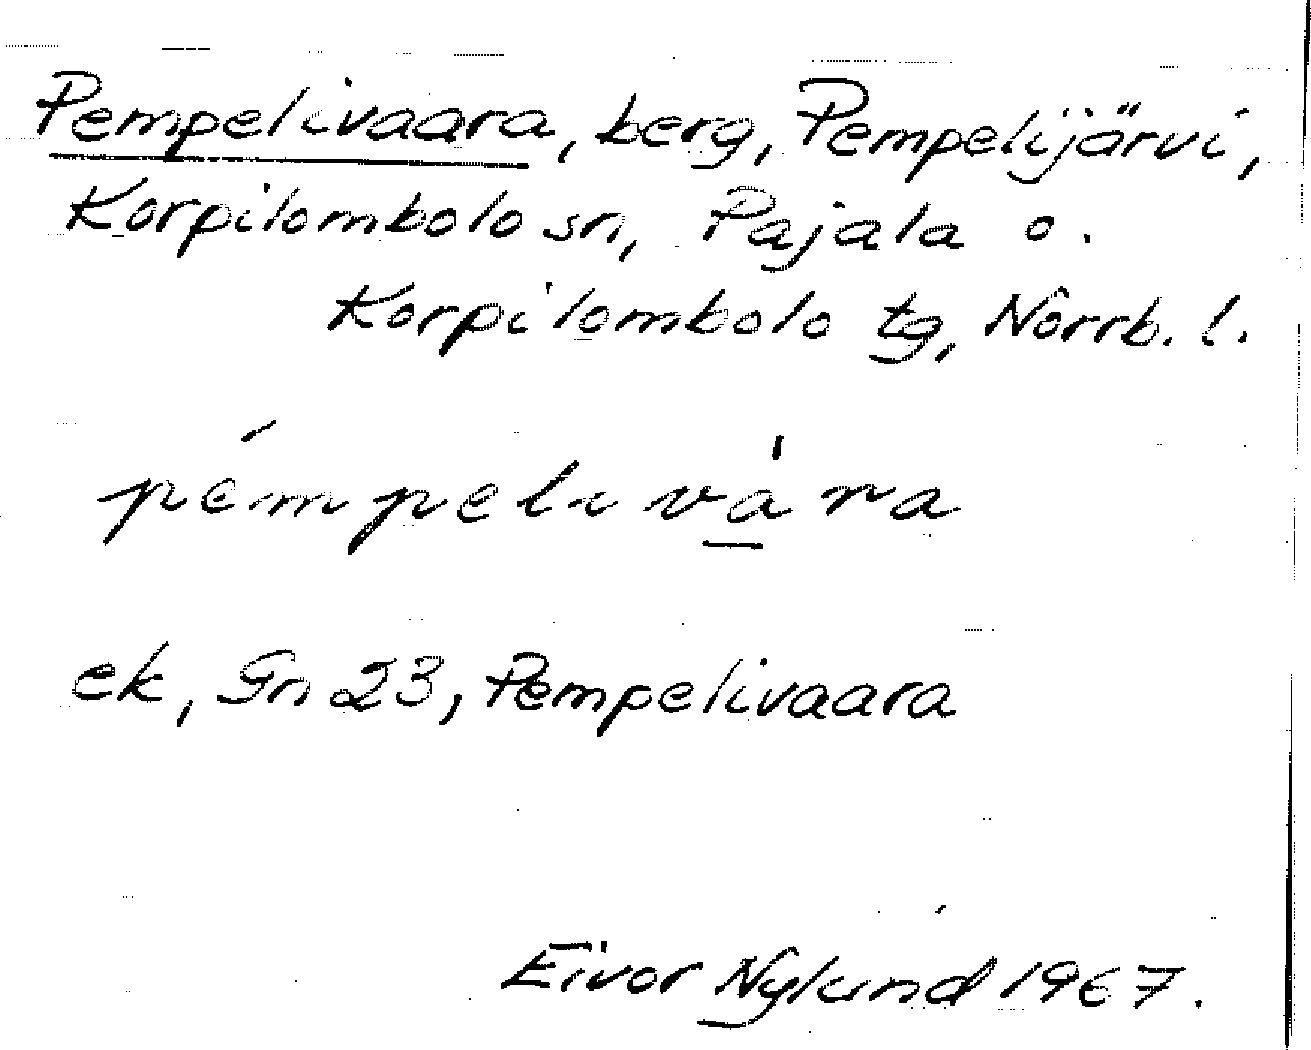 Pempelivaara, berg, Pempelijärvi,
Korpilombolo sn, Pajala o.
Korpilombolo tg, Norrb. l.
pémpelivàra
ek, Gn 23, Pempelivaara
Eivor Nylund 1967.